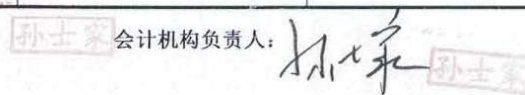 孙士家 会计机构负责人：孙士家 孙士家